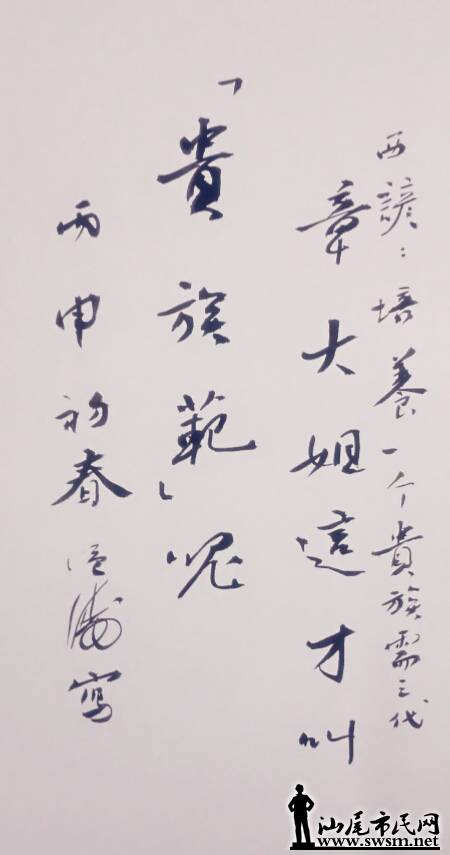 西諺：培養一个貴族需三代
章大姐這才叫
「貴族範」呢
丙申初春 寫
汕尾市民网
www.swsm.net